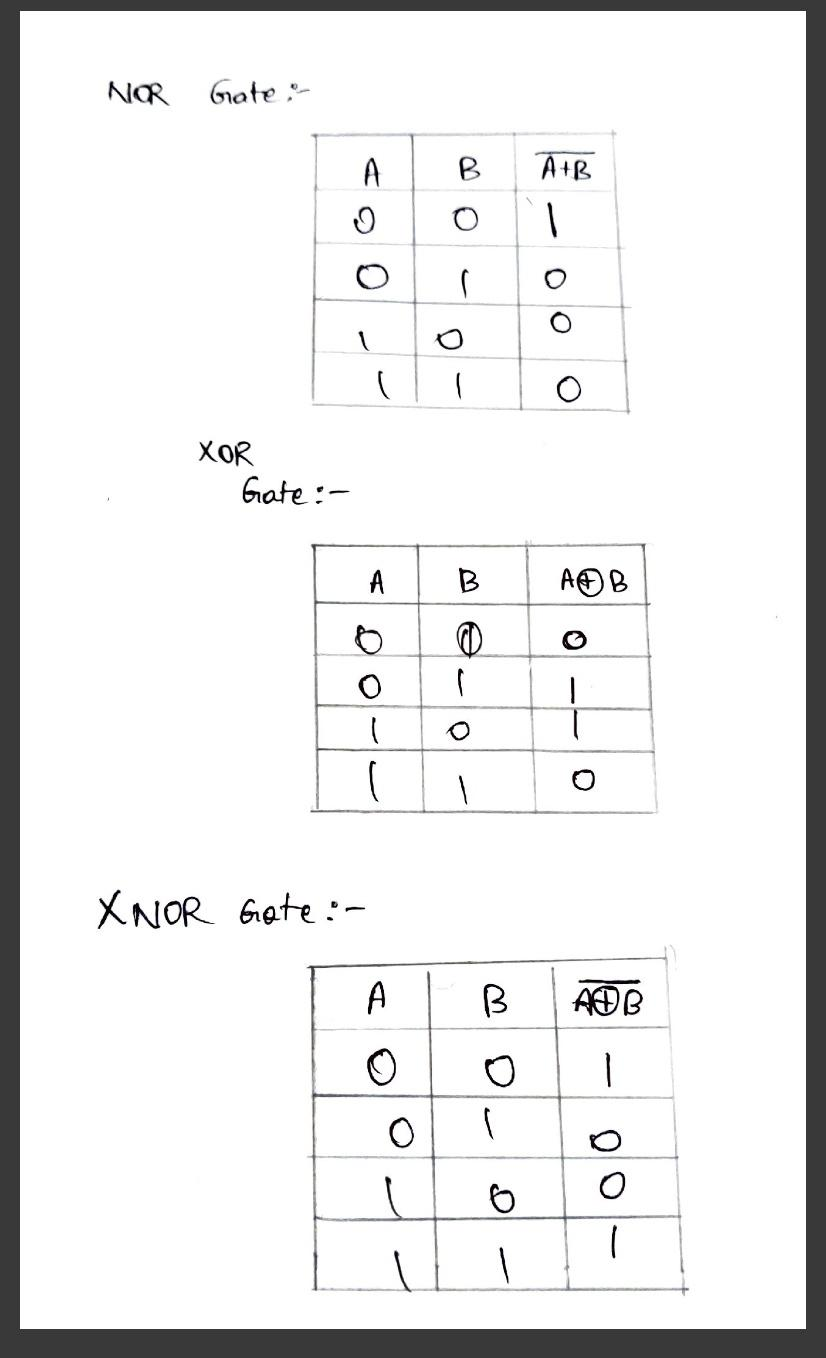 NOR Gate :-
A B \overline{A+B}
0 0 1
0 1 0
1 0 0
1 1 0
XOR
Gate :-
A B A⊕B
0 0
0 1 1
1 0 1
1 1 0
XNOR Gate :-
A B \overline{A⊕B}
0 0 1
0 1 0
1 0 0
1 1 1